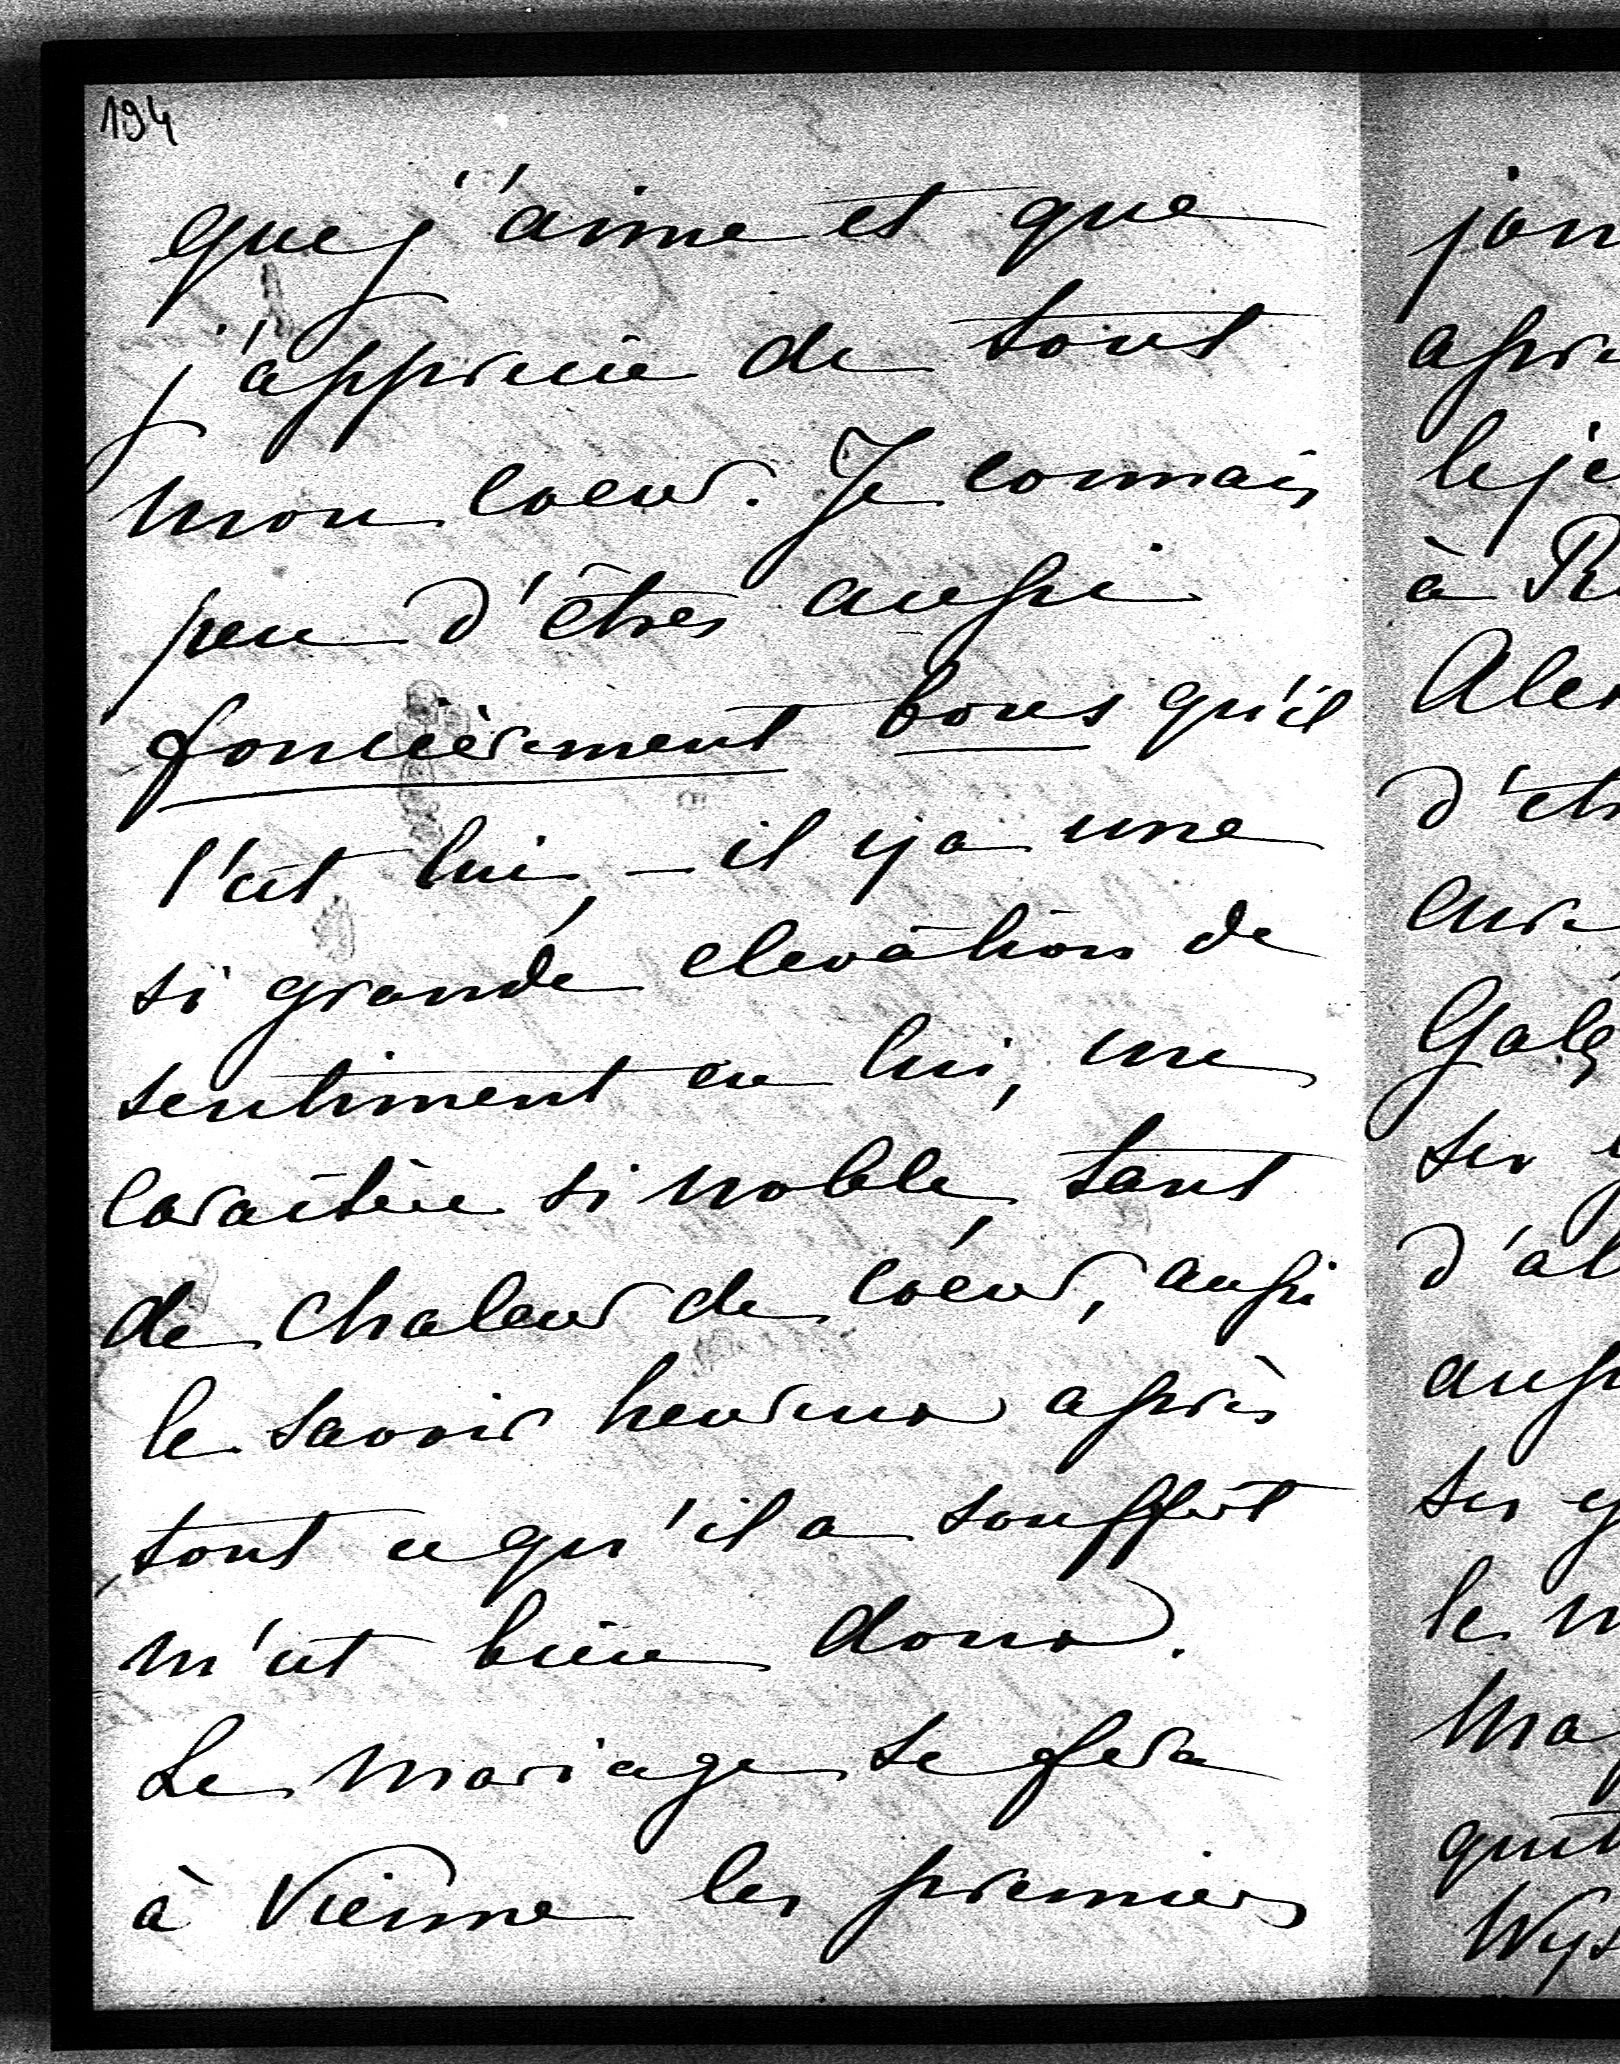 194
que j'aime et que
j'apprecie de tout
mon coeur. Je connais
peu d'êtres aussi
foncièrement bons qu'il
l'est lui, – il y a une
si grande élevation de
sentiment en lui, un
caractère si noble, tant
de chaleur de coeur, aussi
le savoir heureux après
tout ce qu'il a souffert
m'est bien doux.
Le mariage se fera
à Vienne les premiers
à
d'
le